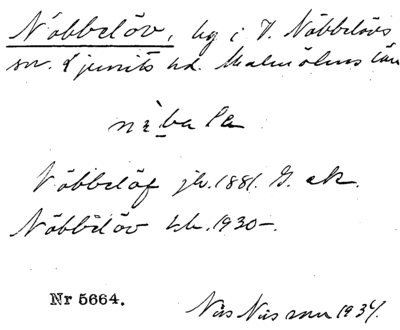 Nöbbelöv, by i V. Nöbbelövs
sn. Ljunits hd. Malmöhus län
Nöbbelöf jb. 1881. G. ek.
Nöbbelöv kb. 1930-.
Nr 5664. Nils Nilsson 1934.